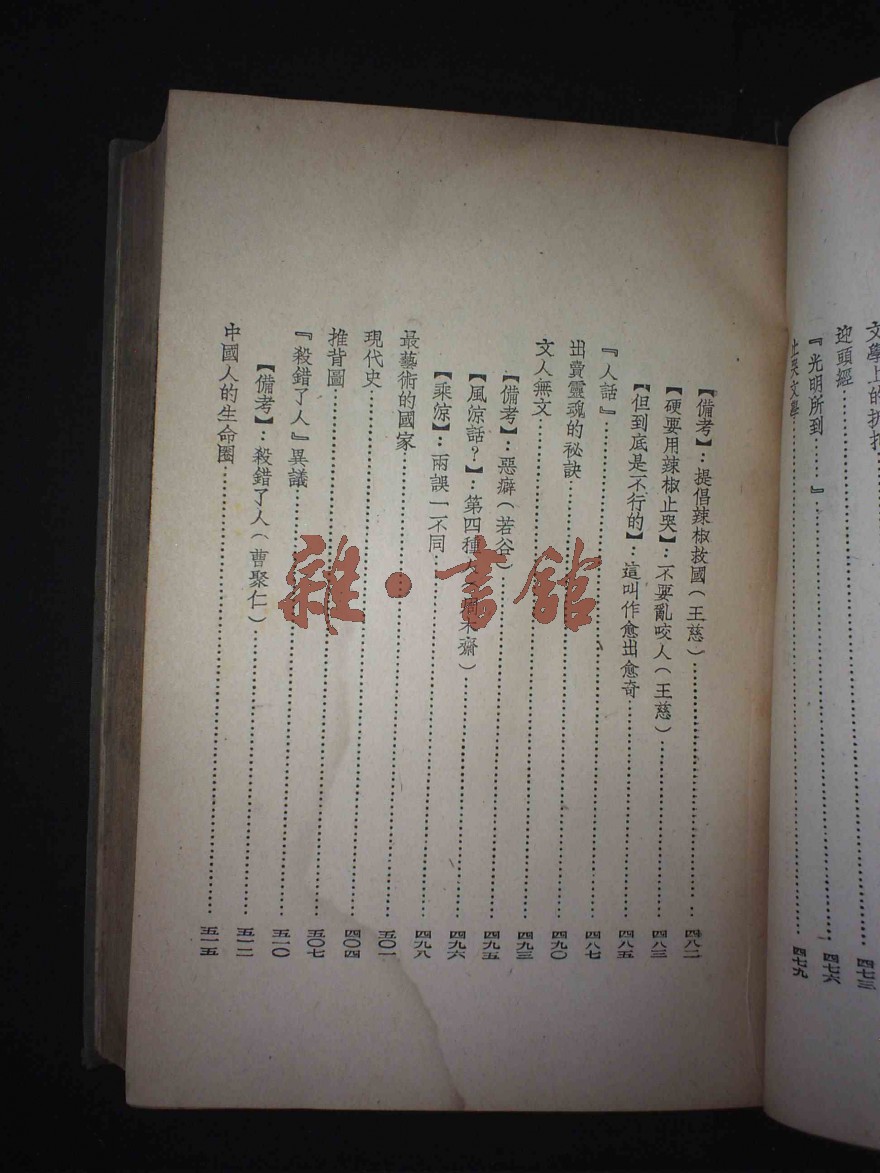 文學上的折
迎頭經……四七三
『光明所到……』……四七六
止哭文學……四七九
【備考】：提倡辣椒救國（王慈）……四八二
【硬要用辣椒止哭】：不要亂咬人（王慈）……四八三
【但到底是不行的】：這叫作愈出愈奇……四八五
『人話』……四八七
出賣靈魂的祕訣……四九〇
文人無文……四九三
【備考】：惡癖（若谷）……四九五
【風涼話？】：第四種人（周木齋）……四九六
【乘涼】：兩誤一不同……四九八
最藝術的國家……五〇一
現代史……四〇四
推背圖……五〇七
『殺錯了人』異議……五一〇
【備考】：殺錯了人（曹聚仁）……五一二
中國人的生命圈……五一五
雜·書館